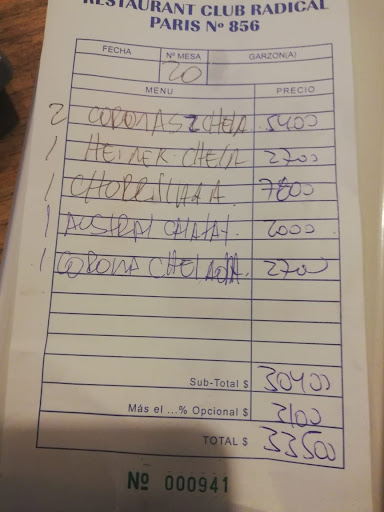 RESTAURANT CLUB RADICAL
PARIS Nº 856
FECHA Nº MESA GARZON(A)
20
MENU PRECIO
2 CORONAS CHELA 5400
1 HEINEK. CHELA 2700
1 CHORRILLANA 7800
1 AUSTRAL CALAFAT. 2000
1 CORONA CHELADA. 2700
Sub-Total $ 30400
Más el ...% Opcional $ 3100
TOTAL $ 33500
Nº 000941